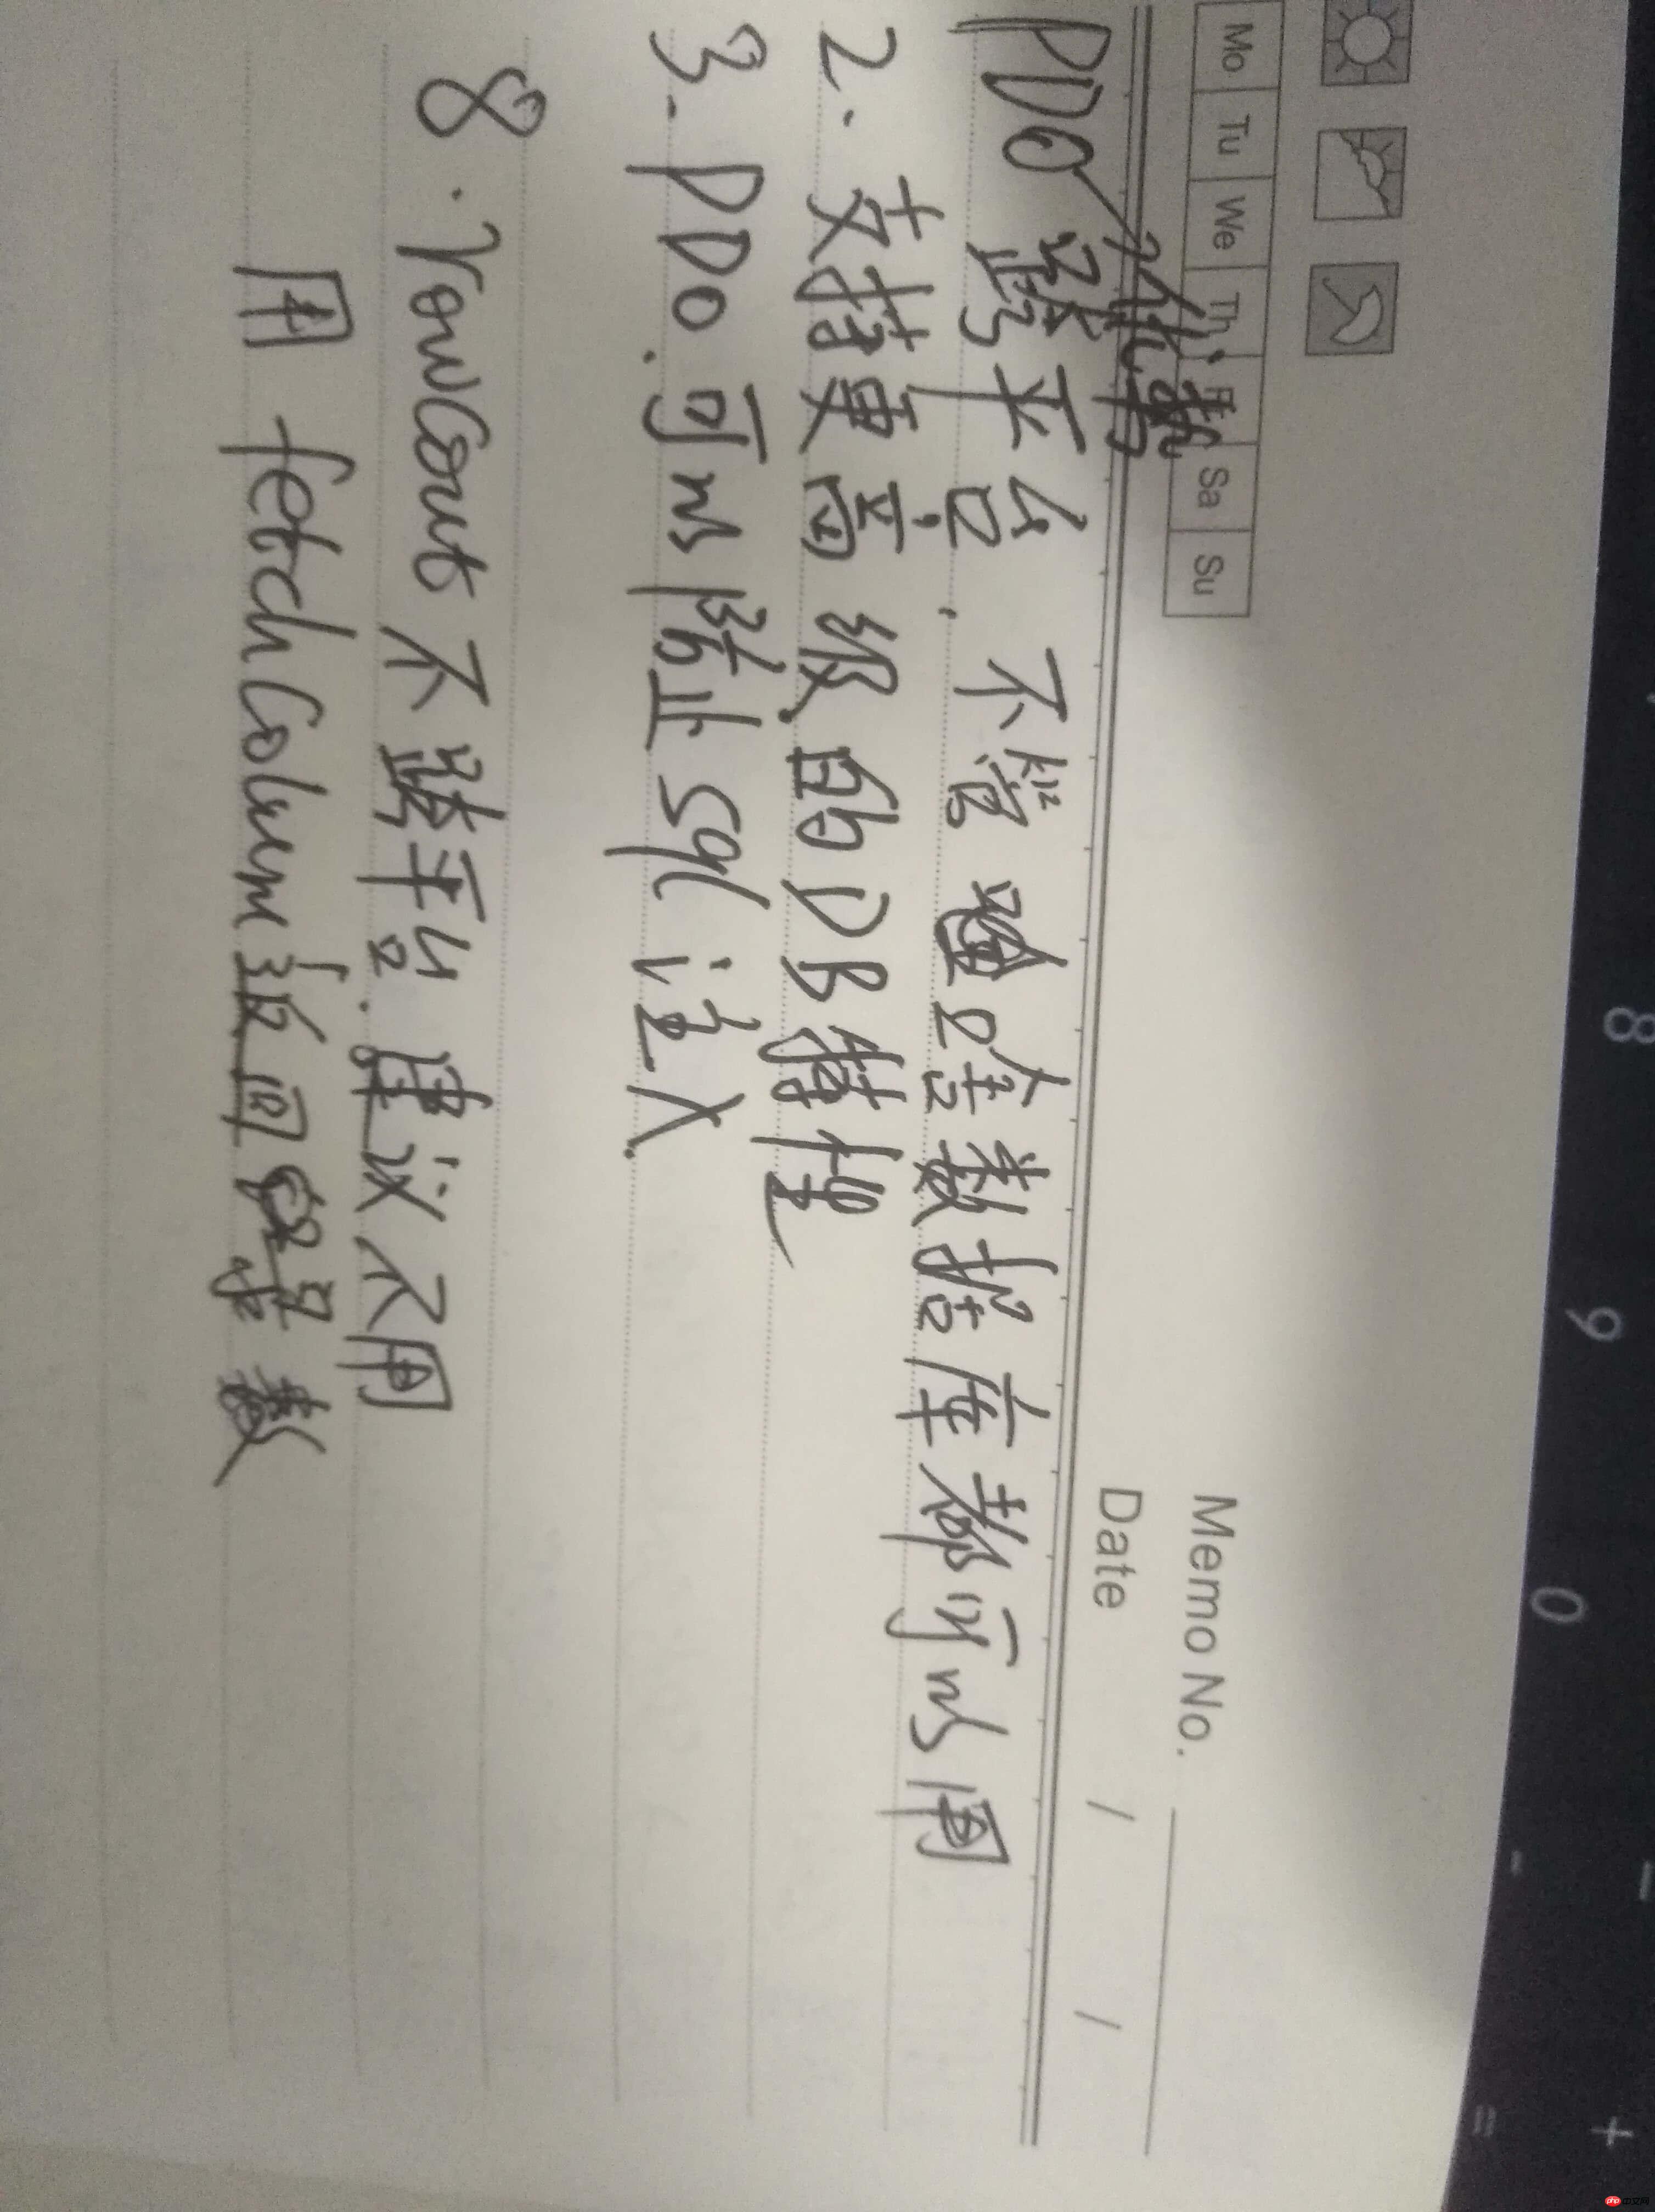 Mo Tu We Th Fr Sa Su
Memo No.
Date / /
PDO 优势
跨平台. 不管啥数据库都可以用
2. 支持更高级的DB特性
3. PDO. 可以防止 sql 注入.
8. rowCout 不跨平台. 建议不用
用 fetchColumn 返回 录数
8 9 0 - = +
php 中文网